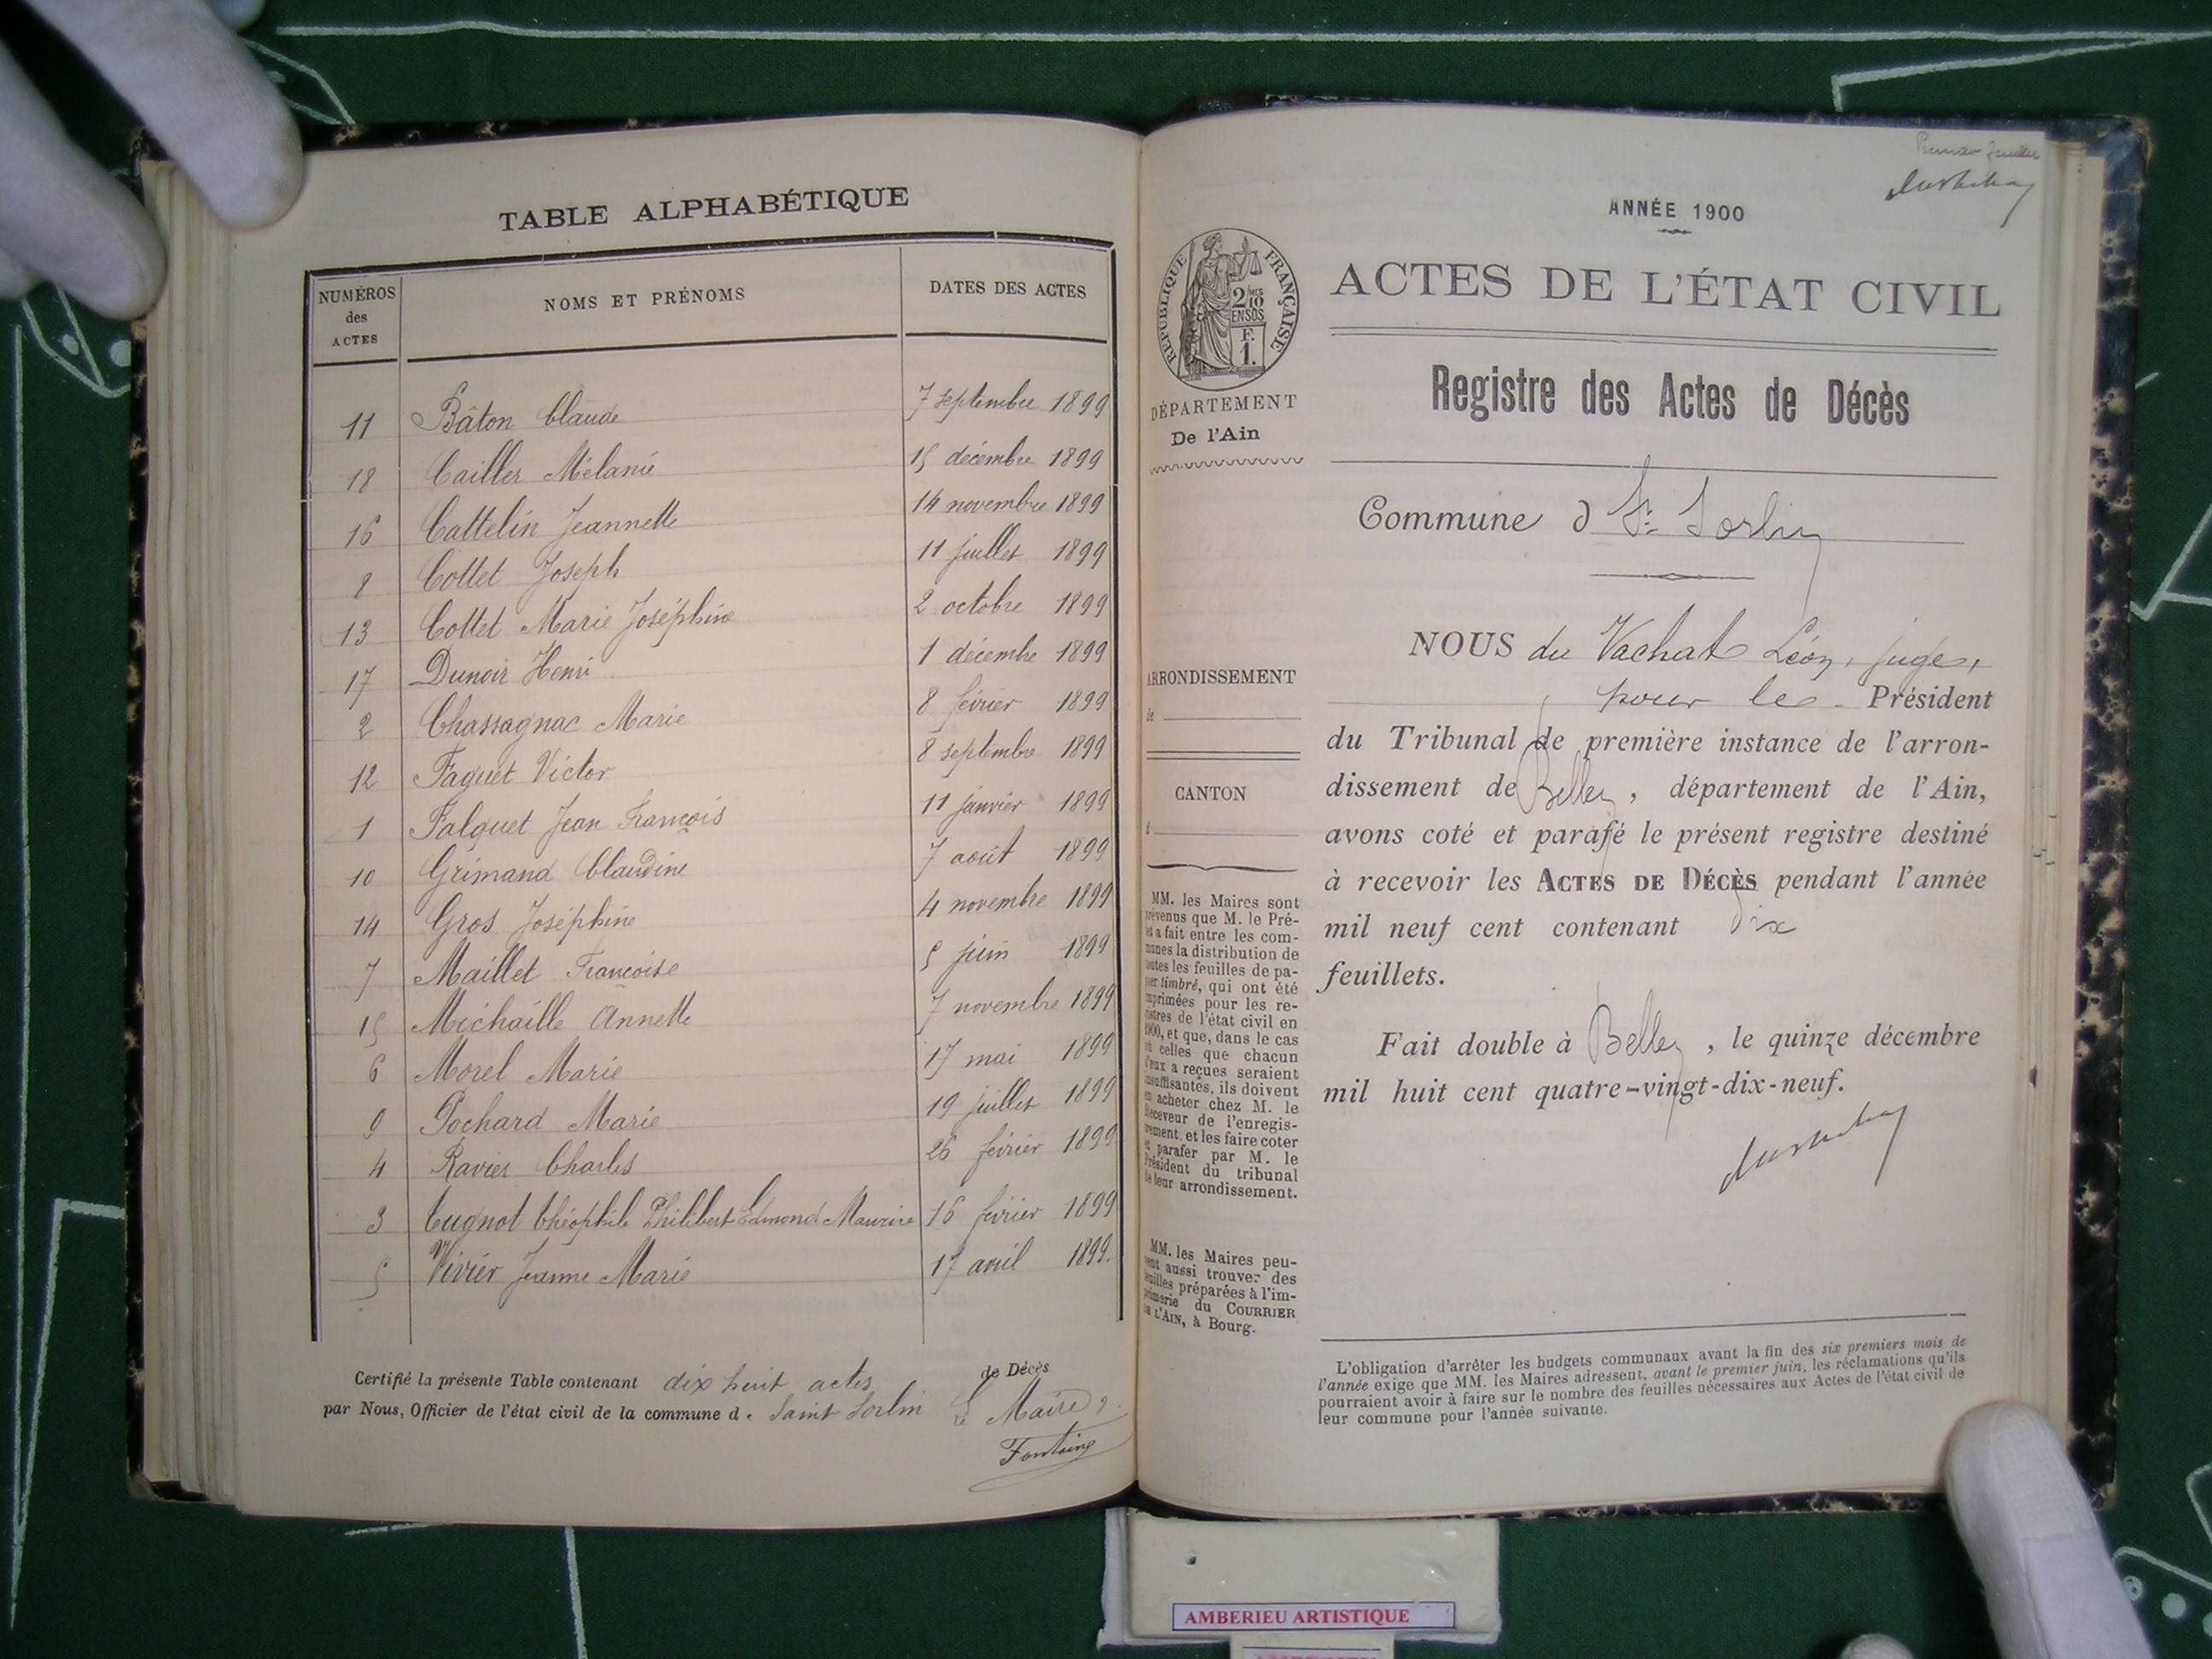 TABLE ALPHABÉTIQUE
NUMÉROS des ACTES NOMS ET PRÉNOMS DATES DES ACTES
11 Bâton Claude 7 septembre 1899
18 Cailler Mélanie 15 décembre 1899
16 Cattelin Jeannette 14 novembre 1899
8 Cottet Joseph 11 juillet 1899
13 Cottet Marie Joséphine 2 octobre 1899
17 Dunoir Henri 1 décembre 1899
2 Chassagnac Marie 8 février 1899
12 Faguet Victor 8 septembre 1899
1 Falquet Jean François 11 janvier 1899
10 Grimand Claudine 7 août 1899
14 Gros Joséphine 4 novembre 1899
7 Maillet Françoise 5 juin 1899
15 Michaille Annette 7 novembre 1899
6 Morel Marie 17 mai 1899
9 Pochard Marie 19 juillet 1899
4 Ravier Charles 26 février 1899
3 Cugnot Théophile Philibert Edmond Maurice 16 février 1899
5 Vivier Jeanne Marie 17 avril 1899.
Certifié la présente Table contenant dix huit actes de Décès
par Nous, Officier de l'état civil de la commune d. Saint Sorlin
Le Maire,
Fontaine
ANNÉE 1900
RÉPUBLIQUE FRANÇAISE
F.
1.
ACTES DE L'ÉTAT CIVIL
Registre des Actes de Décès
DÉPARTEMENT
De l'Ain
Commune d St Sorlin
NOUS du Vachat Léon, juge,
pour le Président
du Tribunal de première instance de l'arron-
dissement de Belley, département de l'Ain,
avons coté et parafé le présent registre destiné
à recevoir les ACTES DE DÉCÈS pendant l'année
mil neuf cent contenant dix
feuillets.
Fait double à Belley, le quinze décembre
mil huit cent quatre-vingt-dix-neuf.
ARRONDISSEMENT
de
CANTON
d
MM. les Maires sont
prévenus que M. le Pré-
et a fait entre les com-
munes la distribution de
toutes les feuilles de pa-
pier timbré, qui ont été
imprimées pour les re-
istres de l'état civil en
1900, et que, dans le cas
où celles que chacun
d'eux a reçues seraient
insuffisantes, ils doivent
en acheter chez M. le
Receveur de l'enregis-
trement, et les faire coter
et parafer par M. le
Président du tribunal
de leur arrondissement.
MM. les Maires peu-
vent aussi trouver des
feuilles préparées à l'im-
primerie du COURRIER
DE L'AIN, à Bourg.
L'obligation d'arrêter les budgets communaux avant la fin des six premiers mois de
l'année exige que MM. les Maires adressent, avant le premier juin, les réclamations qu'ils
pourraient avoir à faire sur le nombre des feuilles nécessaires aux Actes de l'état civil de
leur commune pour l'année suivante.
AMBERIEU ARTISTIQUE